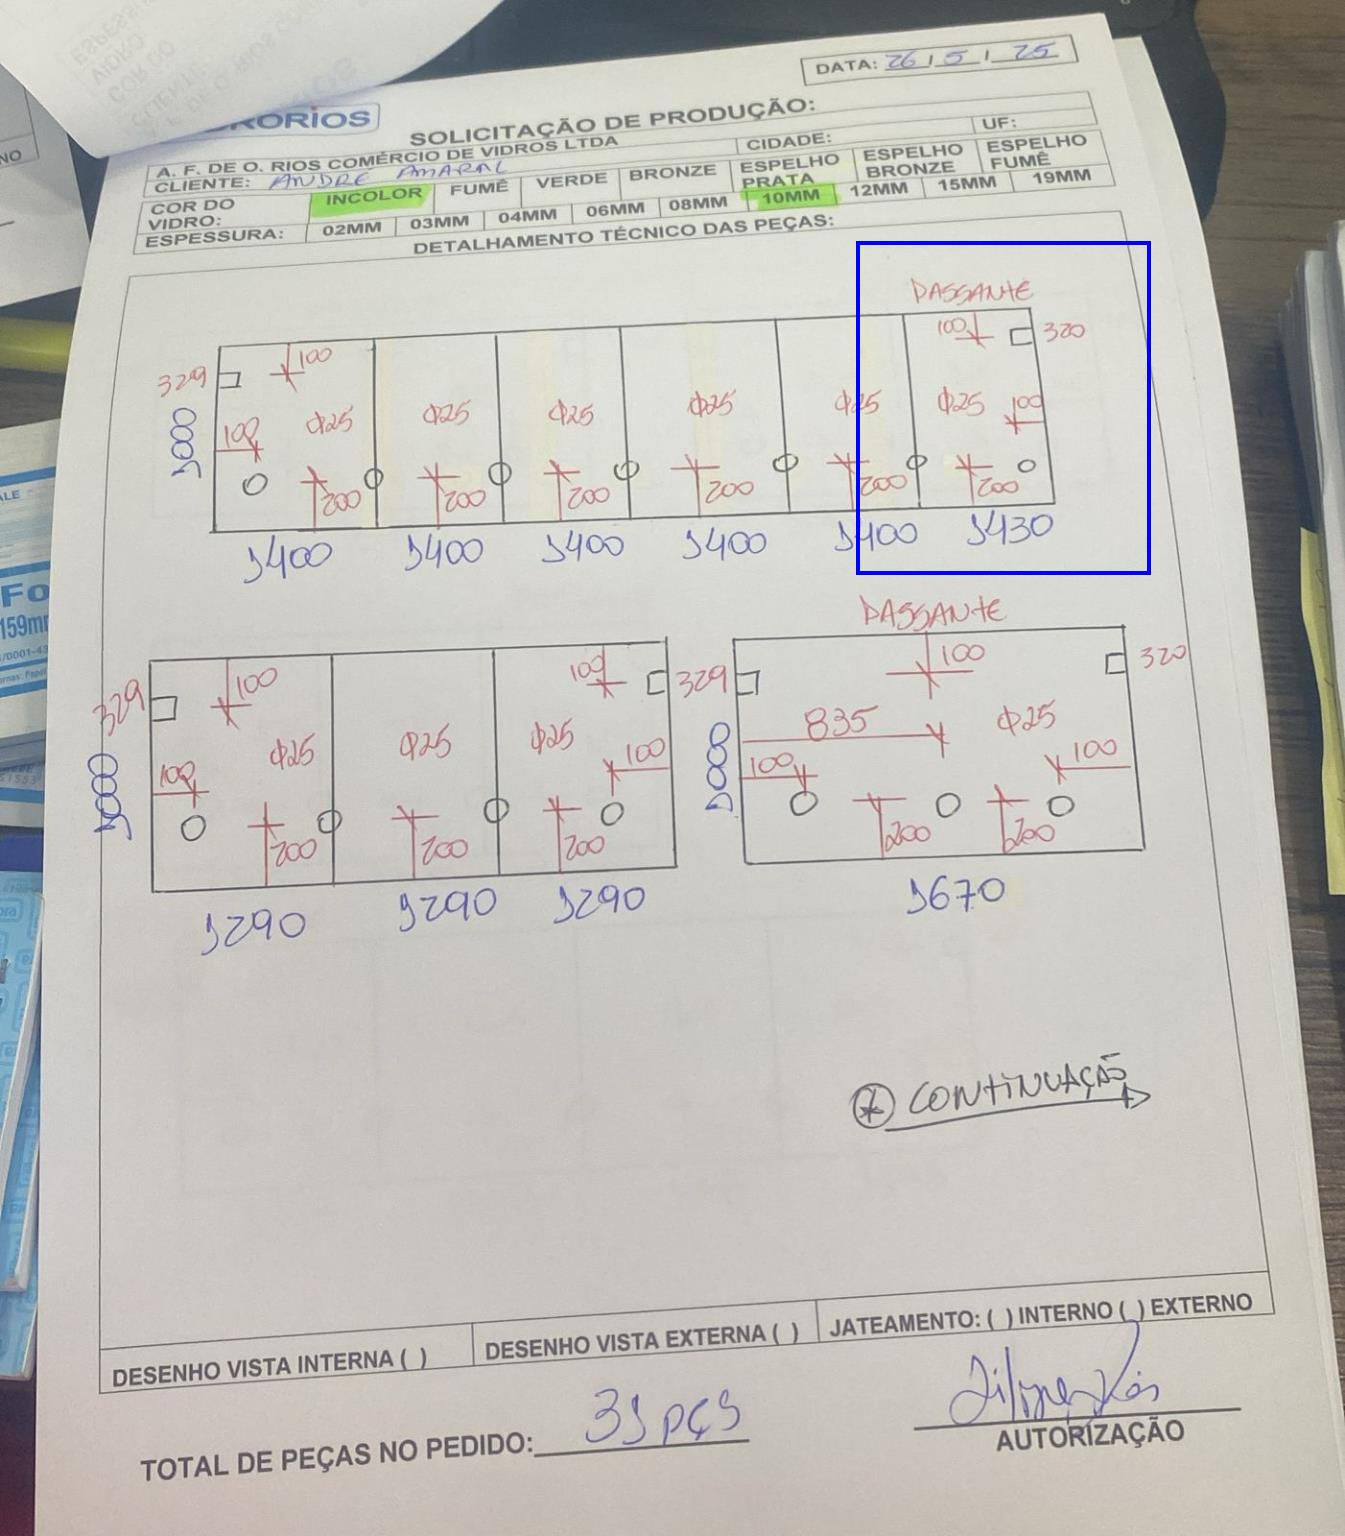 DATA: 26 / 5 / 25
RORIOS
SOLICITAÇÃO DE PRODUÇÃO:
A. F. DE O. RIOS COMÉRCIO DE VIDROS LTDA
CIDADE:
UF:
CLIENTE: ANDRE AMARAL
COR DO VIDRO:
INCOLOR
FUMÊ
VERDE
BRONZE
ESPELHO PRATA
ESPELHO BRONZE
ESPELHO FUMÊ
ESPESSURA:
02MM
03MM
04MM
06MM
08MM
10MM
12MM
15MM
19MM
DETALHAMENTO TÉCNICO DAS PEÇAS:
PASSANTE
329 100 100 320
1000 100 Φ25 Φ25 Φ25 Φ25 Φ25 Φ25 100
200 200 200 200 200 200
1400 1400 1400 1400 1400 1430
PASSANTE
329 100 100 329 100 320
1000 100 Φ25 Φ25 Φ25 100 1000 835 Φ25
100 100
200 200 200 200 200
1290 1290 1290 1670
* CONTINUAÇÃO
DESENHO VISTA INTERNA ( )
DESENHO VISTA EXTERNA ( )
JATEAMENTO: ( ) INTERNO ( ) EXTERNO
TOTAL DE PEÇAS NO PEDIDO: 31 PÇS
AUTORIZAÇÃO